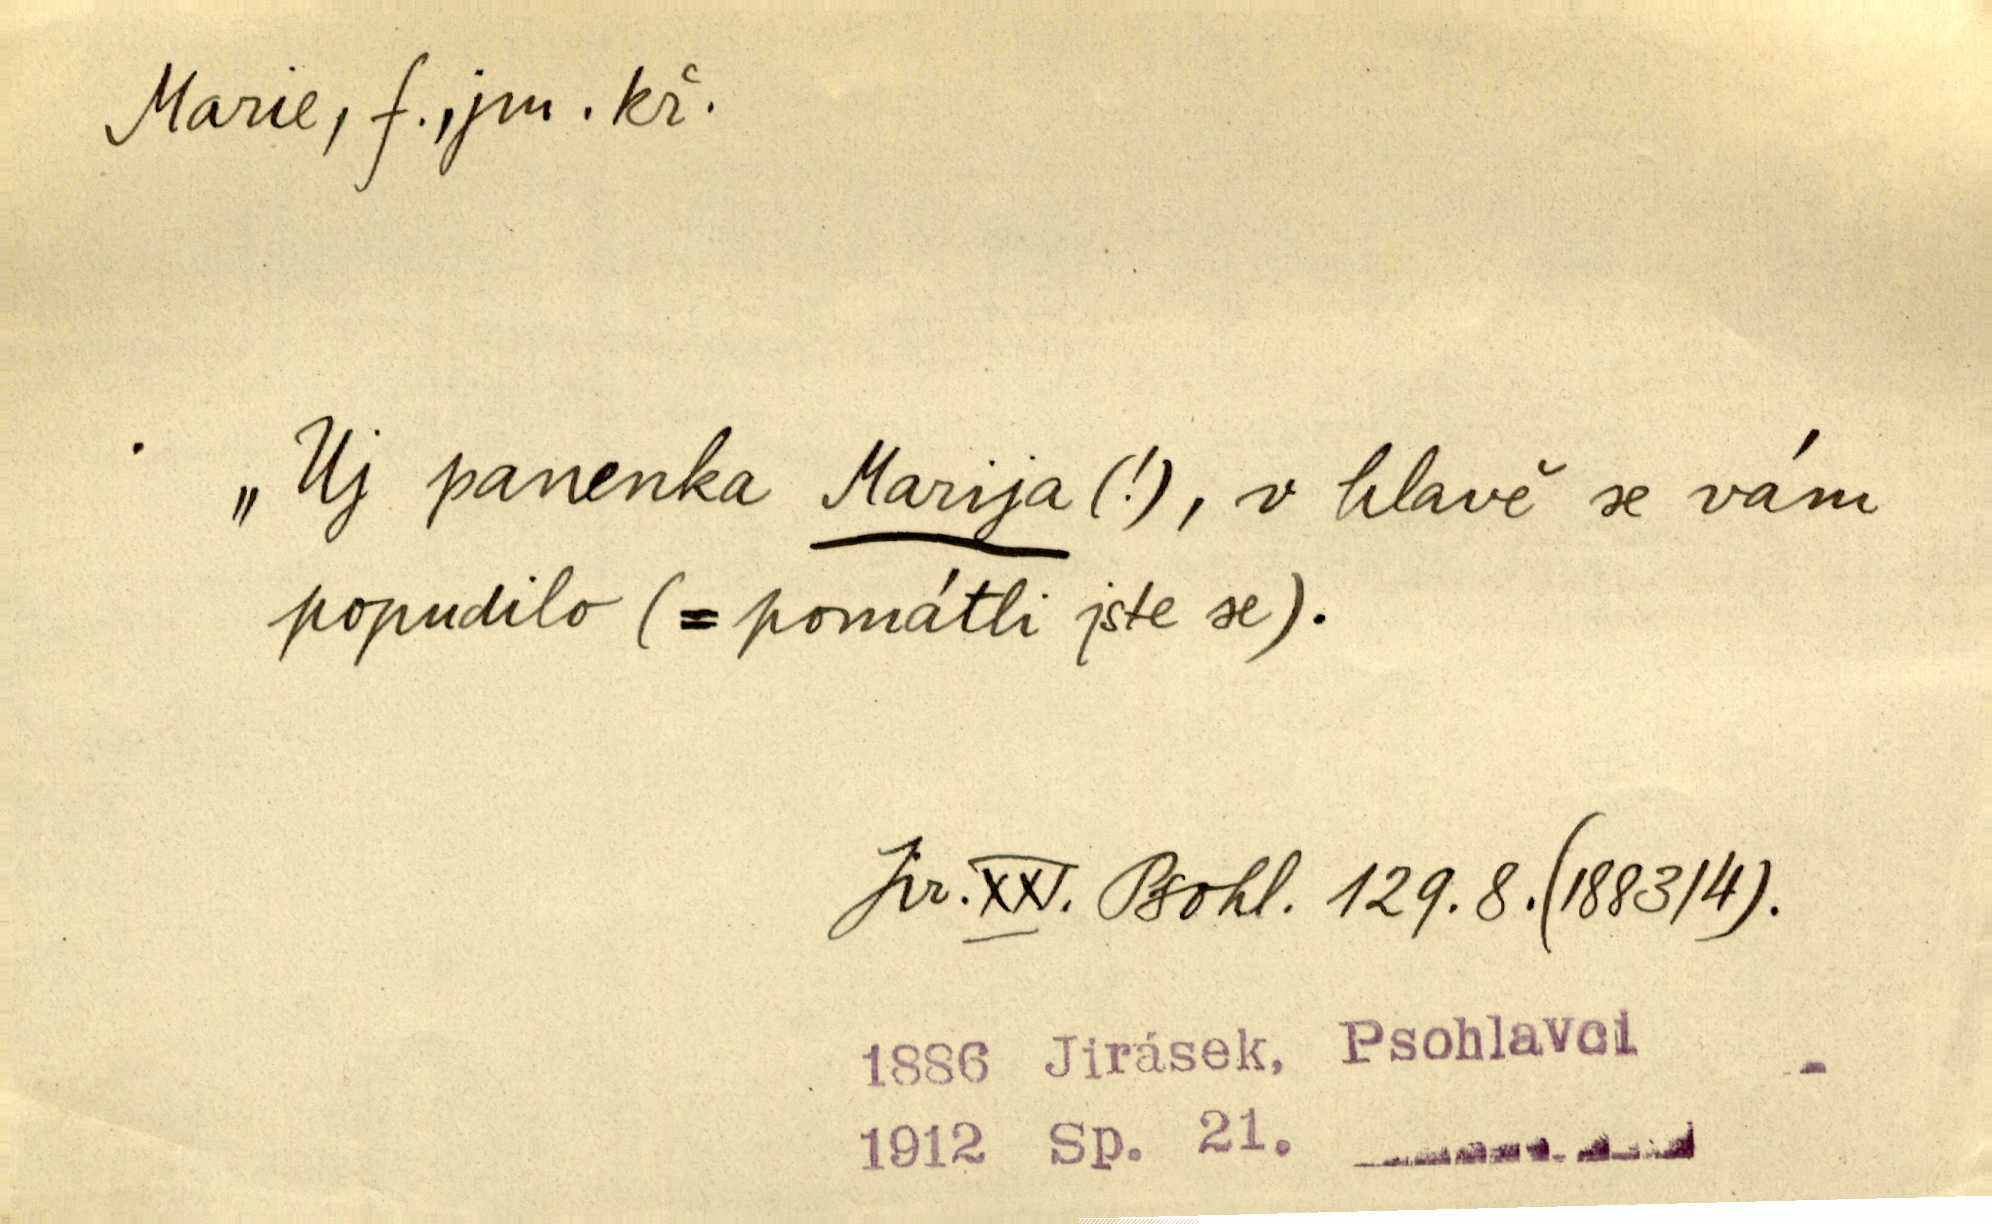 Marie, f., jm. kř.
„Uj panenka Marija (!), v hlavě se vám
popudilo (= pomátli jste se).
Jir. XXI. Psohl. 129. 8. (1883/4).
1886 Jirásek, Psohlavci
1912 Sp. 21.